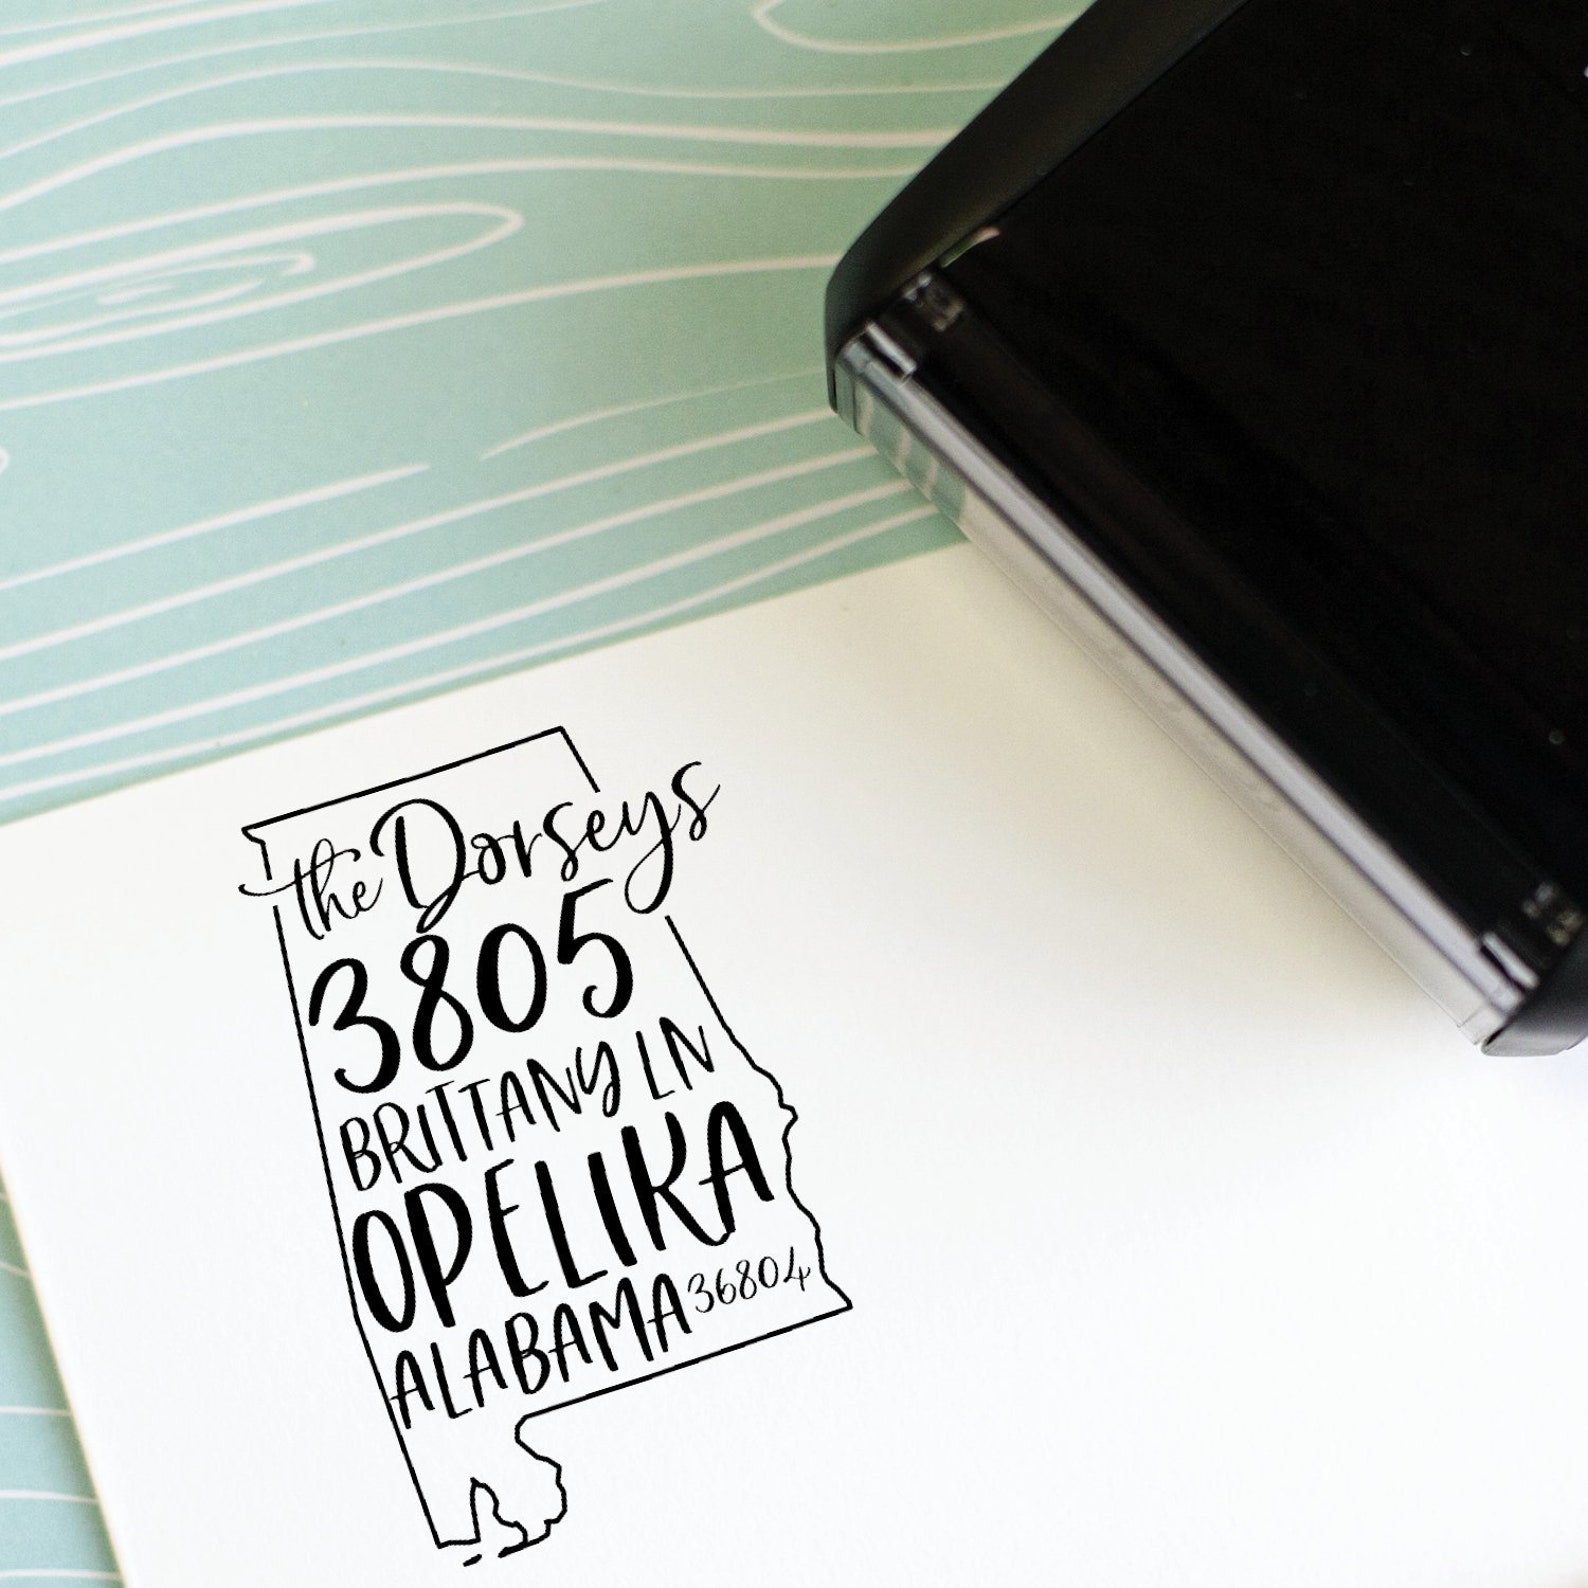 the Dorseys
3805
BRITTANY LN
OPELIKA
ALABAMA 36804